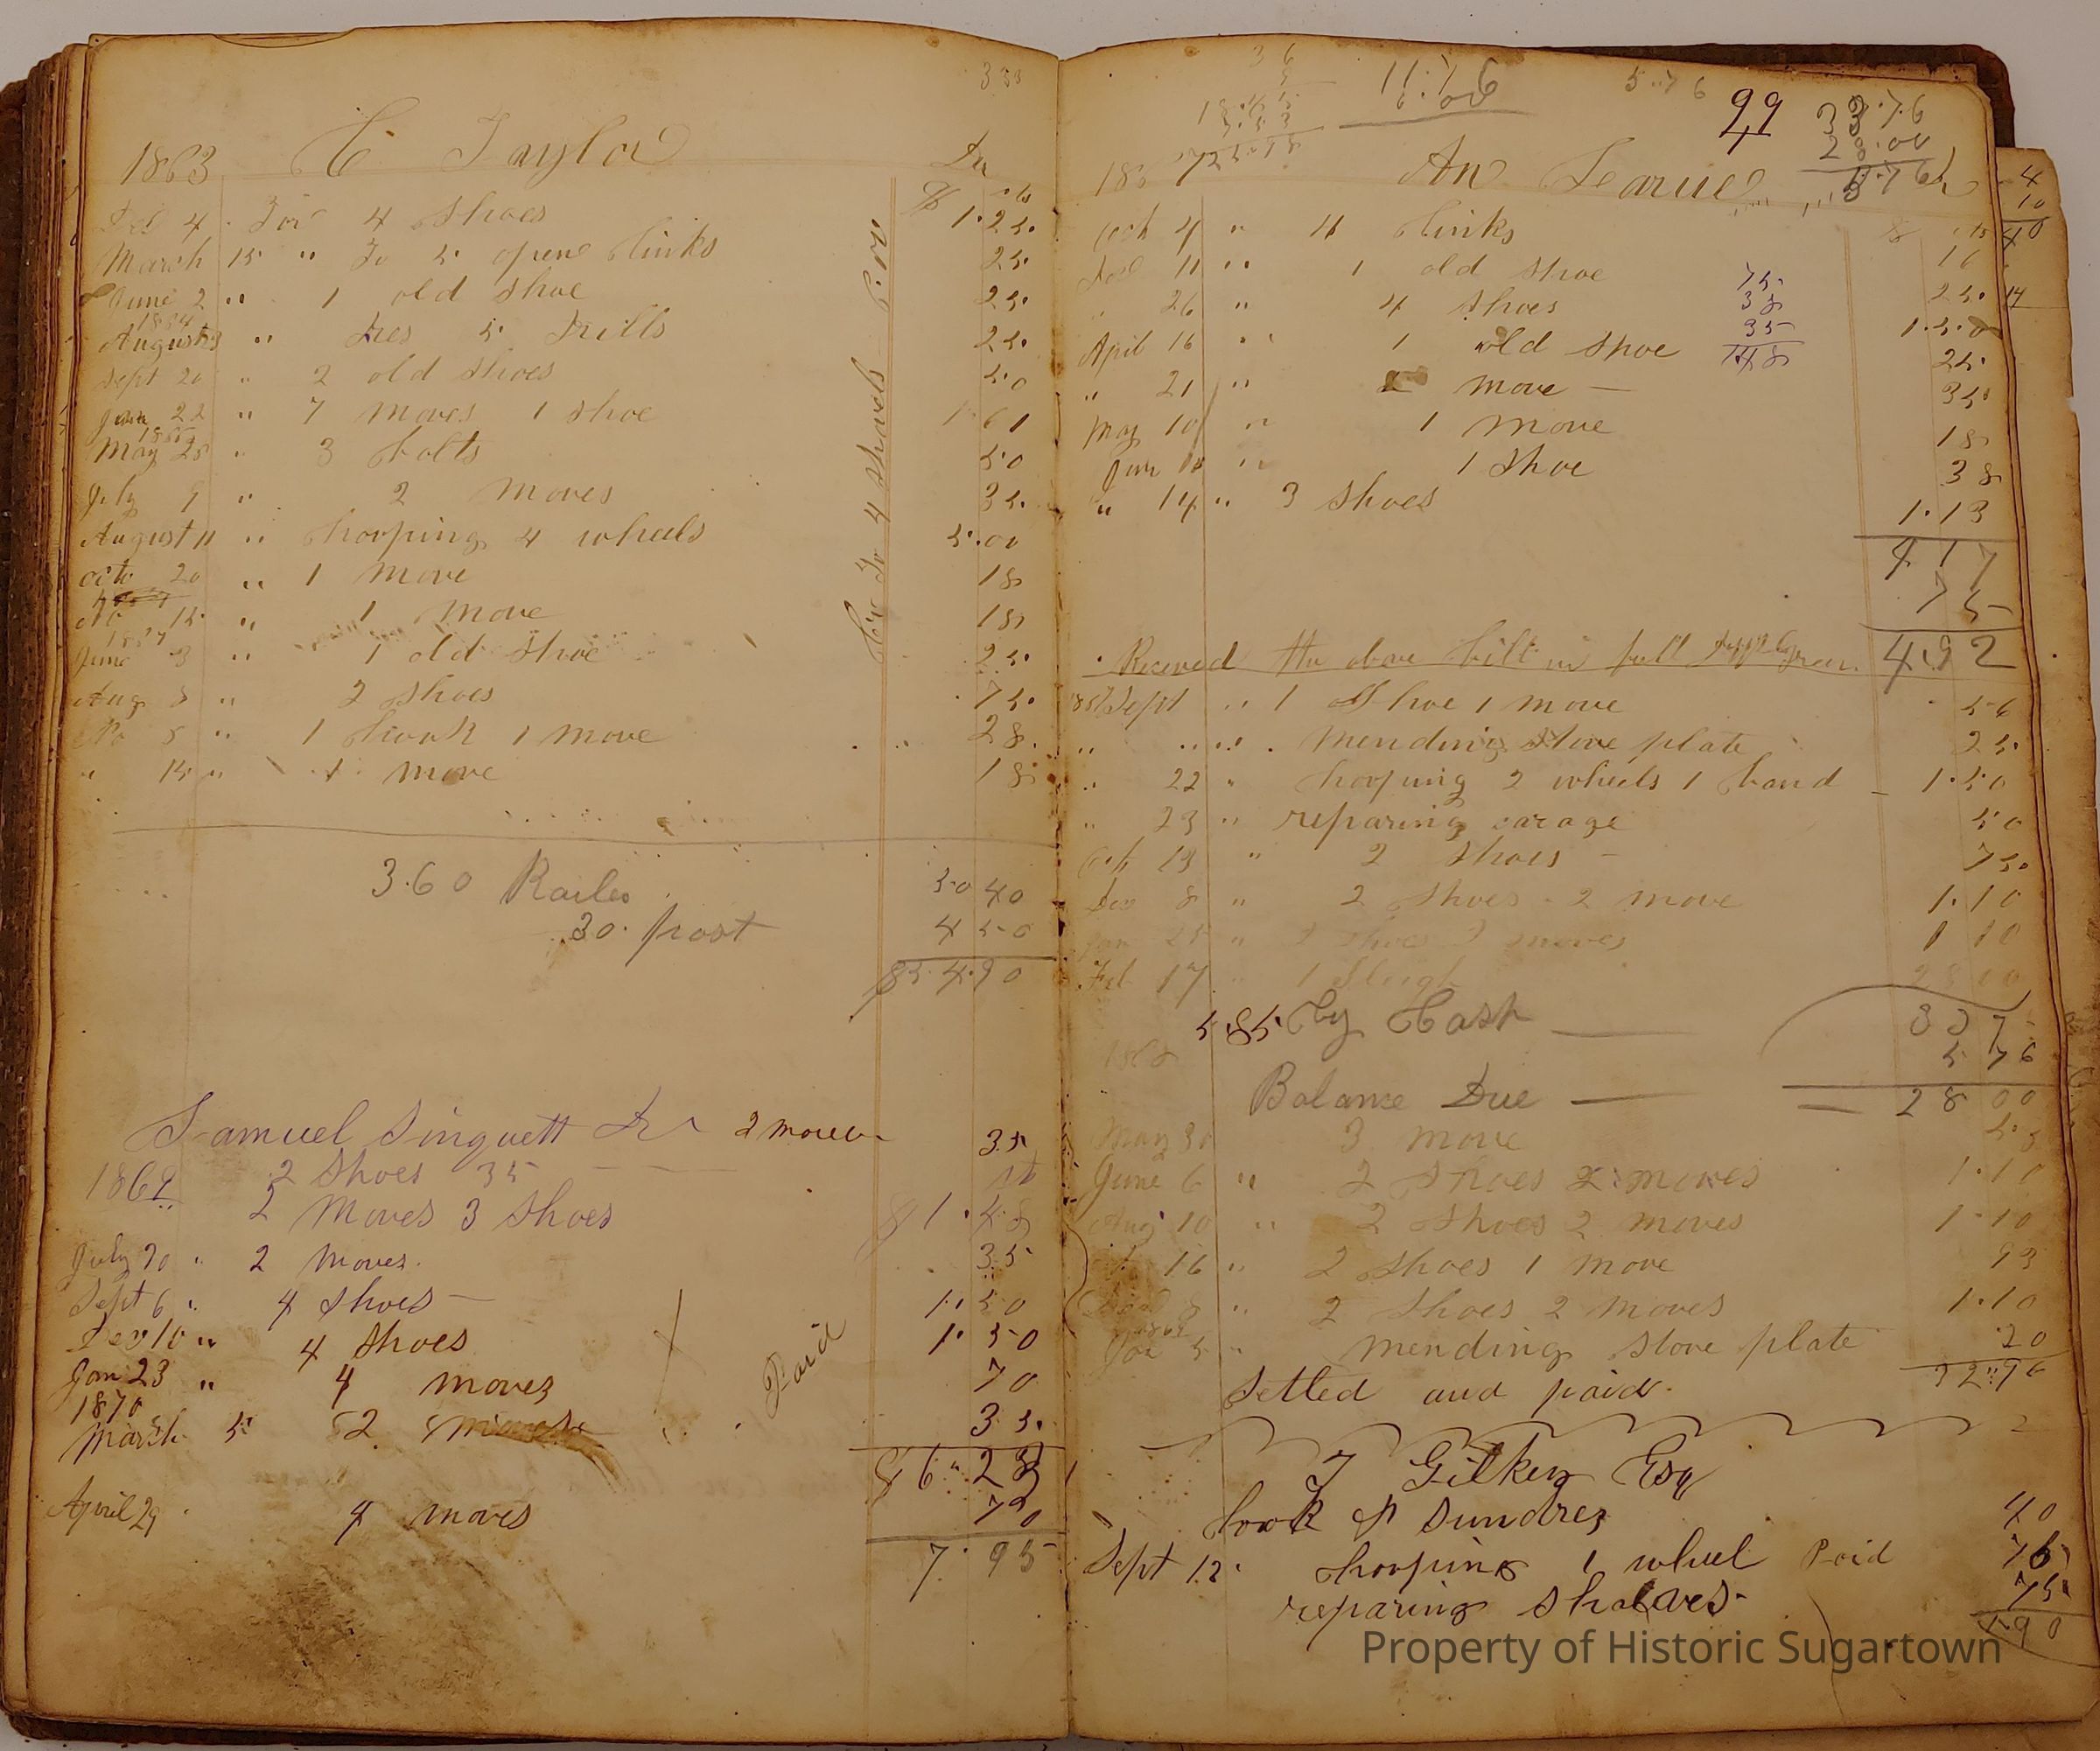 1863 C Taylor Dr
Feb 4 For 4 Shoes $ 1.25
March 15 " To 5 open links 25
June 2 " 1 old shoe 25
1864
August 23 " 5 Drills 25
Sept 20 " 2 old shoes 50
Jan 22 " 7 moves 1 shoe 1 61
May 25 " 3 bolts 50
July 9 " 2 moves 35
August 11 " hooping 4 wheels 5.00
octo 20 " 1 move 18
15 " 1 move 18
June 3 " 1 old shoe 25
Aug 8 " 2 shoes 75
No 8 " 1 hook 1 move 28
" 15 " 1 move 18
4 shovels
360 Railes 50 40
30 post 4 50
$54.90
Samuel Singuett Dr 2 moves 35
1869 2 Shoes 35
2 Moves 3 Shoes $ 1.48
July 20 " 2 moves 35
Sept 6 " 4 shoes 1.50
Dec 10 " 4 shoes 1.50
Jan 23 " 4 moves 70
1870
March 5 2 moves 35
Paid
$6.23
70
April 29 4 moves
7.95
11.76
6.00
5.76
99
33.76
28.00
5.76
Oct 4 " 4 links 16
Dec 11 " 1 old shoe 25
" 26 " 4 shoes 1.50
75
38
35
148
April 16 " 1 old shoe 25
" 21 " 2 move 35
May 10 " 1 move 18
June 10 " 1 Shoe 38
" 14 " 3 shoes 1.13
4 17
75
Received the above bill in full 4.92
Sept " 1 Shoe 1 move 56
" " mending stove plate 25
" 22 " hooping 2 wheels 1 band 1.50
" 23 " reparing carage 50
Oct 13 " 2 shoes 75
Dec 8 " 2 shoes 2 move 1.10
Jan 25 " 2 shoes 2 moves 1 10
Feb 17 " 1 Sleigh 28 00
5.85 By Cash
5 76
1868
Balance Due 28 00
May 30 3 move 53
June 6 " 2 shoes 2 moves 1.10
Aug 10 " 2 shoes 2 moves 1.10
16 " 2 shoes 1 move 93
8 " 2 shoes 2 moves 1.10
Jan 5 " mending stove plate 20
32.96
Setled and paid
J Gilkey Esq
hook & sundres 40
Sept 12 hooping 1 wheel Paid 75
reparing shalves 75
1 90
Property of Historic Sugartown